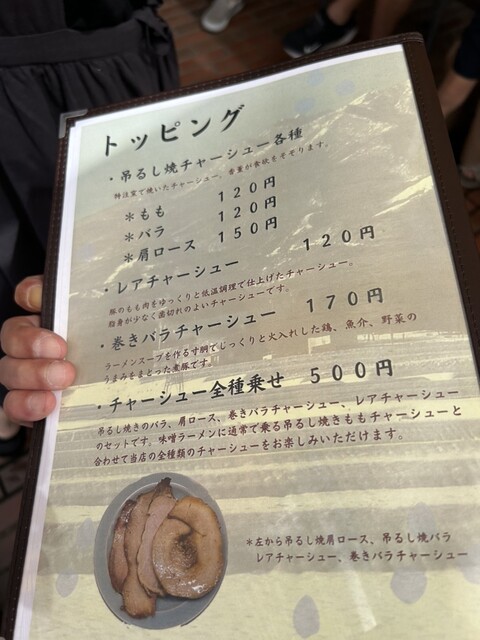 トッピング
・吊るし焼チャーシュー各種
特注窯で焼いたチャーシュー。香薫が食欲をそそります。
＊もも 120円
＊バラ 120円
＊肩ロース 150円
・レアチャーシュー 120円
豚のもも肉をゆっくりと低温調理で仕上げたチャーシュー。
脂身が少なく歯切れのよいチャーシューです。
・巻きバラチャーシュー 170円
ラーメンスープを作る寸胴でじっくりと火入れした鶏、魚介、野菜の
うまみをまとった煮豚です。
・チャーシュー全種乗せ 500円
吊るし焼きのバラ、肩ロース、巻きバラチャーシュー、レアチャーシュー
のセットです。味噌ラーメンに通常で乗る吊るし焼きももチャーシューと
合わせて当店の全種類のチャーシューをお楽しみいただけます。
＊左から吊るし焼肩ロース、吊るし焼バラ
レアチャーシュー、巻きバラチャーシュー